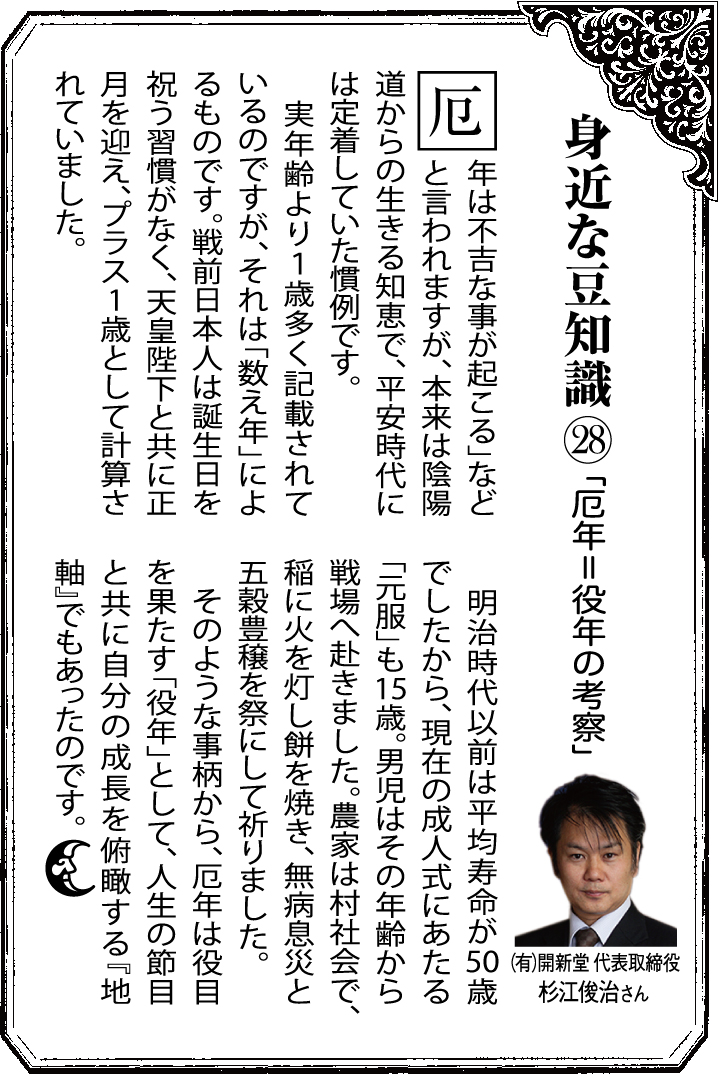 身近な豆知識㉘「厄年＝役年の考察」
㈲開新堂 代表取締役
杉江俊治さん
厄年は不吉な事が起こる」など
と言われますが、本来は陰陽
道からの生きる知恵で、平安時代に
は定着していた慣例です。
実年齢より1歳多く記載されて
いるのですが、それは「数え年」によ
るものです。戦前日本人は誕生日を
祝う習慣がなく、天皇陛下と共に正
月を迎え、プラス1歳として計算さ
れていました。
明治時代以前は平均寿命が50歳
でしたから、現在の成人式にあたる
「元服」も15歳。男児はその年齢から
戦場へ赴きました。農家は村社会で、
稲に火を灯し餅を焼き、無病息災と
五穀豊穣を祭にして祈りました。
そのような事柄から、厄年は役目
を果たす「役年」として、人生の節目
と共に自分の成長を俯瞰する『地
軸』でもあったのです。